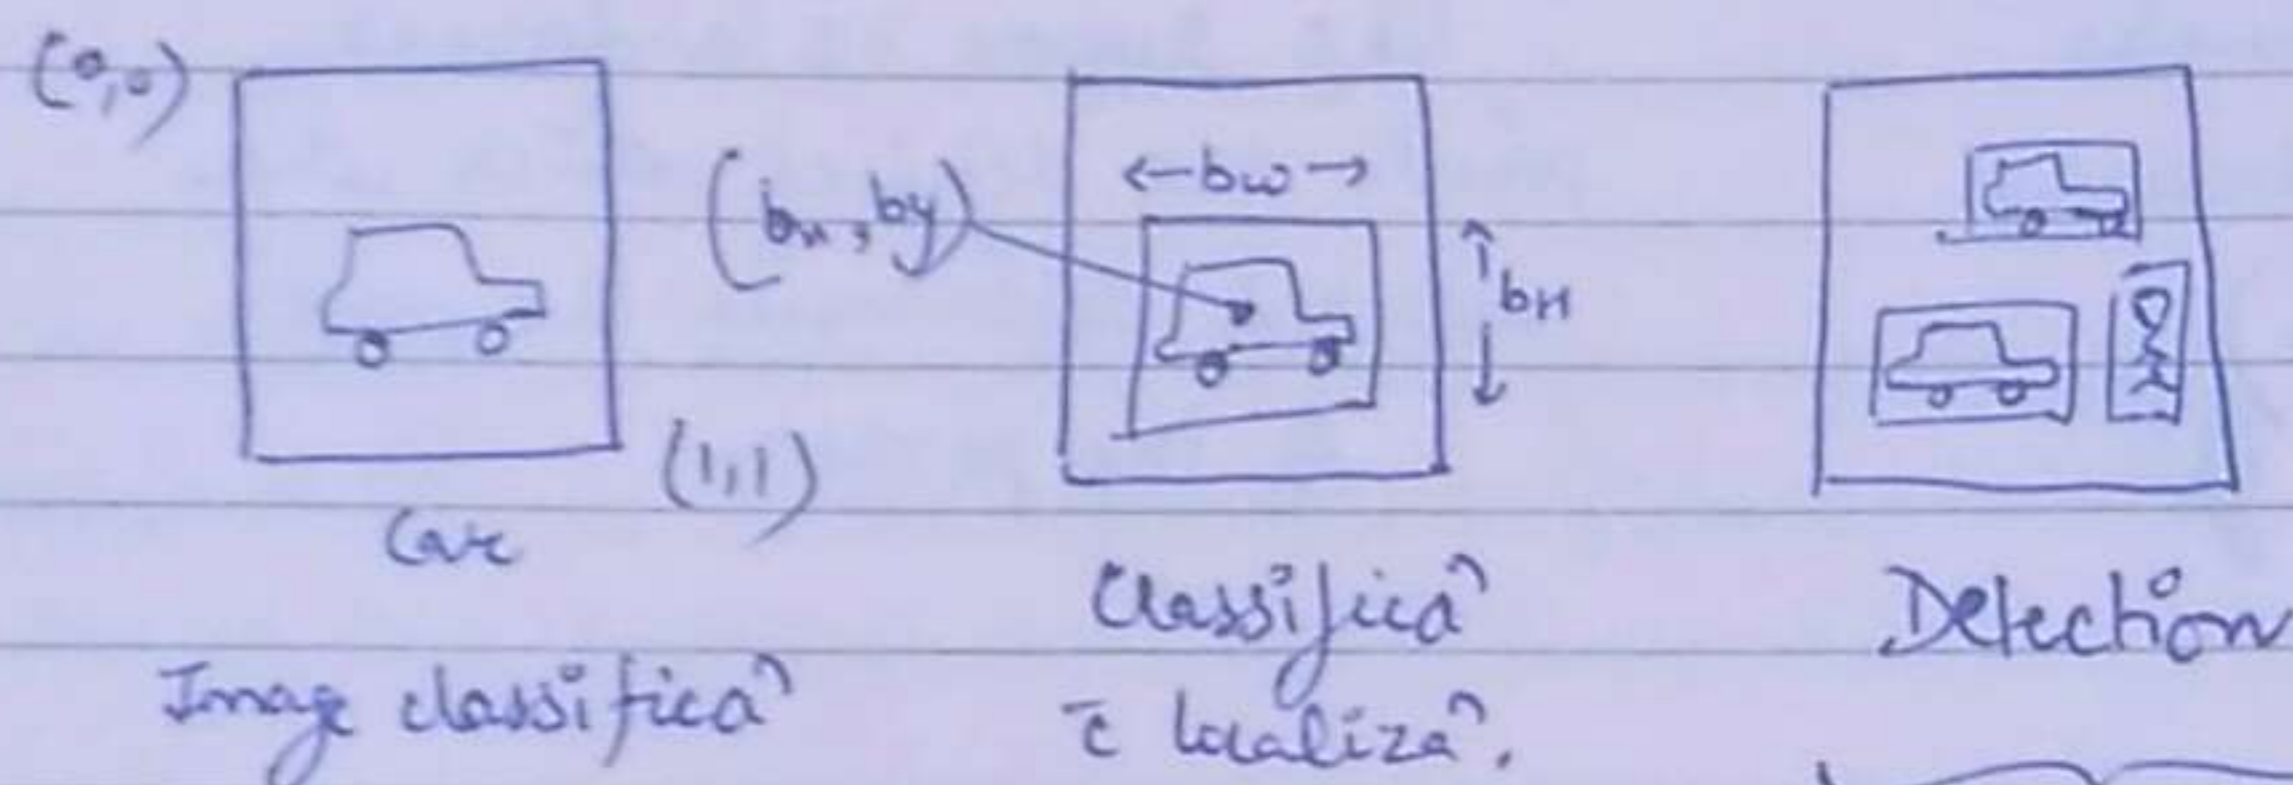 (0,0)
(bx, by)
←bw→
bH
(1,1)
Car
Image classificaⁿ
Classificaⁿ
c̄ localizaⁿ.
Detection